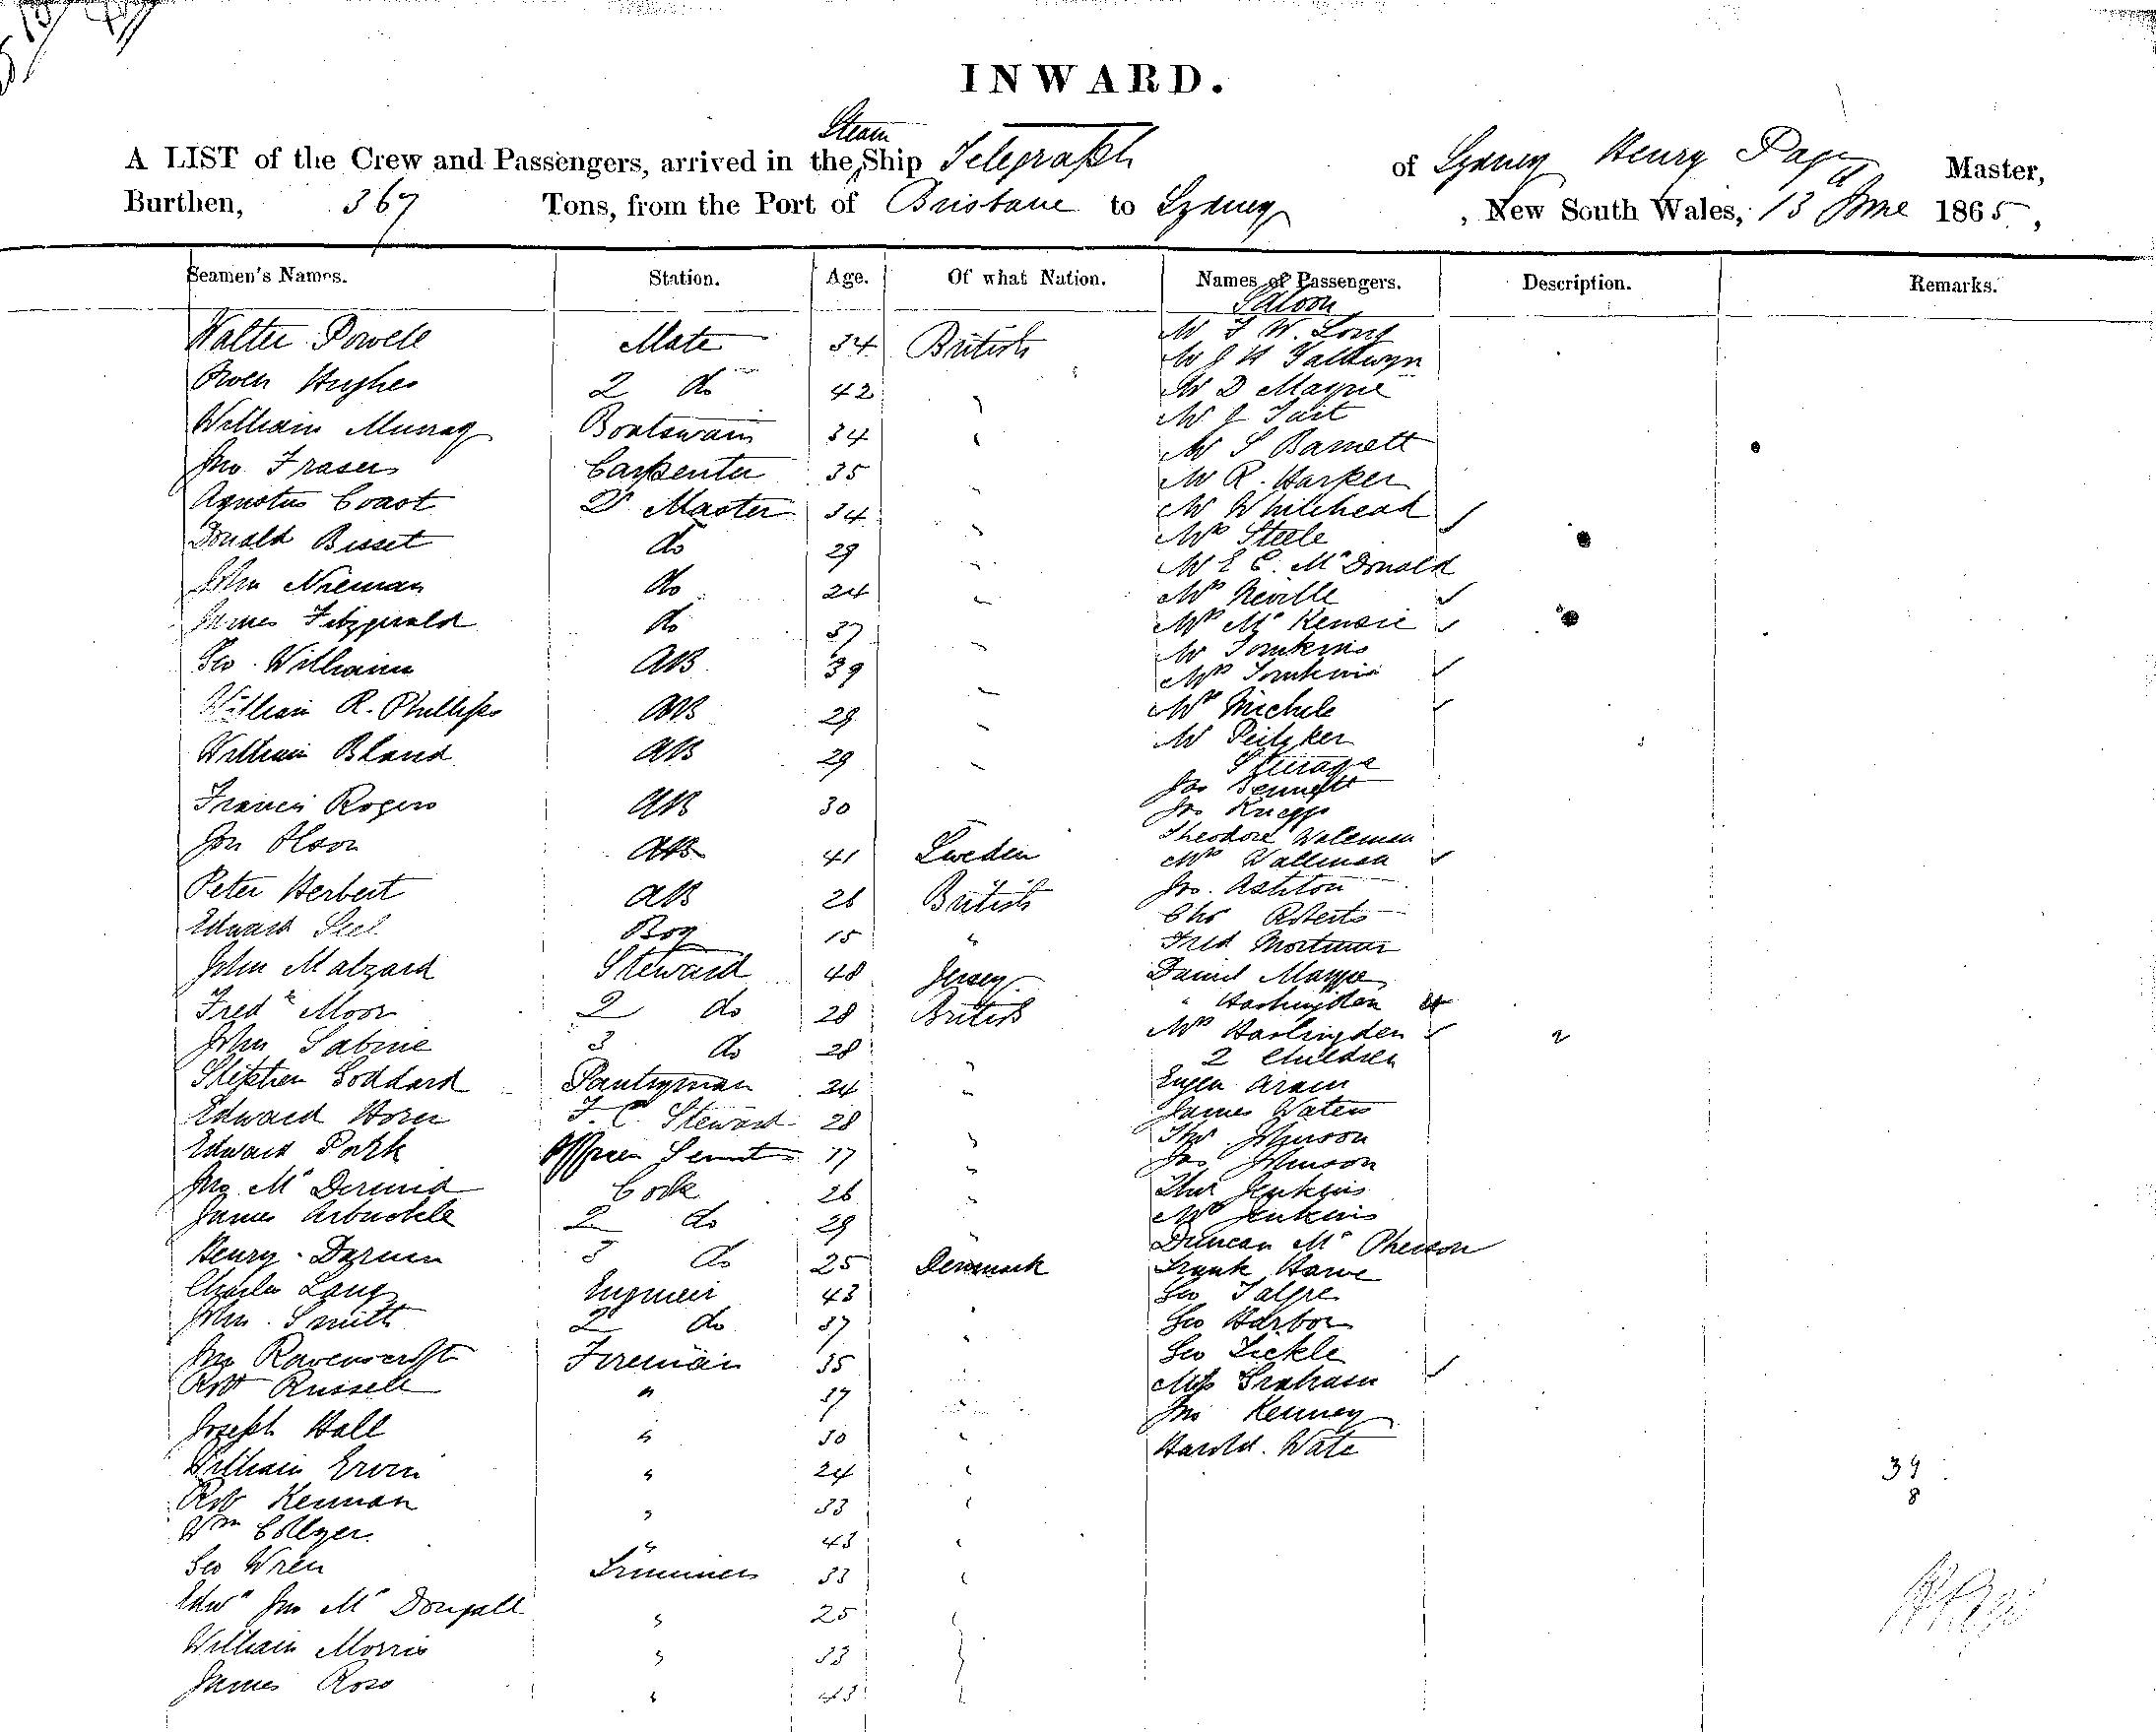 INWARD.
Steam
A LIST of the Crew and Passengers, arrived in the Ship Telegraph of Sydney Henry Page Master,
Burthen, 367 Tons, from the Port of Brisbane to Sydney , New South Wales, 13 June 1865,
Seamen's Names. Station. Age. Of what Nation. Names of Passengers. Description. Remarks.
Saloon
Walter Powell Mate 34 British Mr F W. Long
Mr J H
Owen Hughes 2 do 42 " Mr D Mayne
Mr J Tait
William Murray Boatswain 34 " Mr S Barnett
Jno. Fraser Carpenter 35 " Mr R. Harker
Coast Qr Master 34 " Mr Whitehead
Donald Bisset do 29 " Mrs Steele
Mr E C. McDonald
John Nieman do 24 " Mrs Neville
James Fitzgerald do 37 " Mrs McKensie
Mr Tomkins
Geo. William AB 39 " Mrs Tomkins
William R. Phillips AB 29 " Mrs Michele
Mr
William Bland AB 29 " Steerage
Jas Bennett
Francis Rogers AB 30 " Jno
Theodore Walleman
Jon Olson AB 41 Sweden Mrs Walleman
Peter Herbert AB 26 British Jno. Ashton
Chs Roberts
Edward Steel Boy 15 " Fred Mortimer
John Malzard Steward 48 Jersey Daniel
Fredk Moor 2 do 28 British " Haslingden
Mrs Haslingden 2
John Sabine 3 do 28 " 2 Children
Stephen Goddard Pantryman 24 "
James Waters
Edward Horn F. C. Steward 28 " Thos Johnson
Edward Park Officers Servant 17 " Jas Johnson
Jno McDermid Cook 26 " Thos Jenkins
James Arbuckle 2 do 29 " Mrs Jenkins
Duncan McPherson
Henry Darnen 3 do 25 Denmark Frank Howe
Charles Lang Engineer 43 " Geo
John Smith 2 do 37 " Geo Harbor
Jno Ravenscroft Fireman 35 " Geo Tickle
Robt Russell " 37 " Miss Graham
Jno Kenney
Joseph Hall " 30 " Harold. Wate
William Ervin " 24 " 39
Rob Kennan " 33 " 8
Wm Collyer " 43 "
Geo Wren Trimmer 33 "
Edwd Jno McDougall " 25 "
William Morris " 33 "
James Ross " 43 "